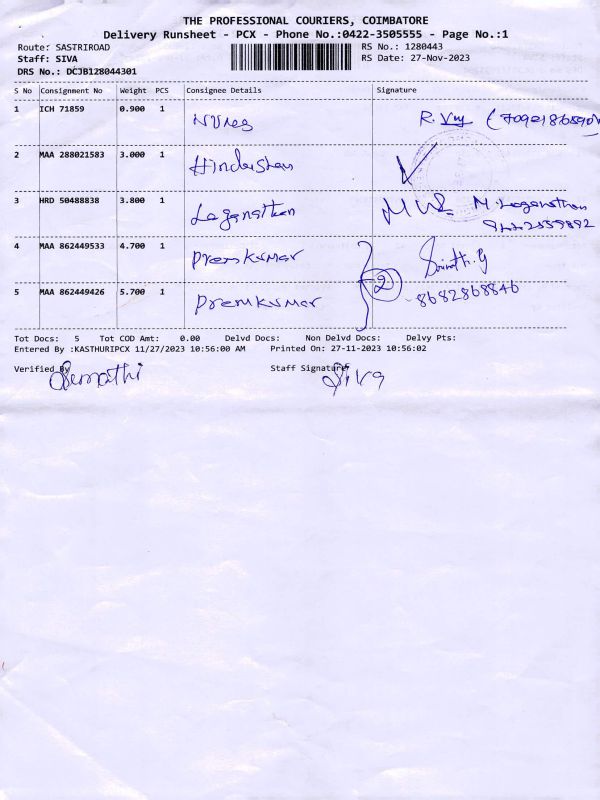 THE PROFESSIONAL COURIERS, COIMBATORE
Delivery Runsheet - PCX - Phone No.:0422-3505555 - Page No.:1
Route: SASTRIROAD RS No.: 1280443
Staff: SIVA RS Date: 27-Nov-2023
DRS No.: DCJB128044301
S No Consignment No Weight PCS Consignee Details Signature
1 ICH 71859 0.900 1
2 MAA 288021583 3.000 1
3 HRD 50488838 3.800 1 Loganathan M. Loganathan
4 MAA 862449533 4.700 1 Premkumar
2
8682868846
5 MAA 862449426 5.700 1 Premkumar
Tot Docs: 5 Tot COD Amt: 0.00 Delvd Docs: Non Delvd Docs: Delvy Pts:
Entered By :KASTHURIPCX 11/27/2023 10:56:00 AM Printed On: 27-11-2023 10:56:02
Verified By Staff Signature
Siva